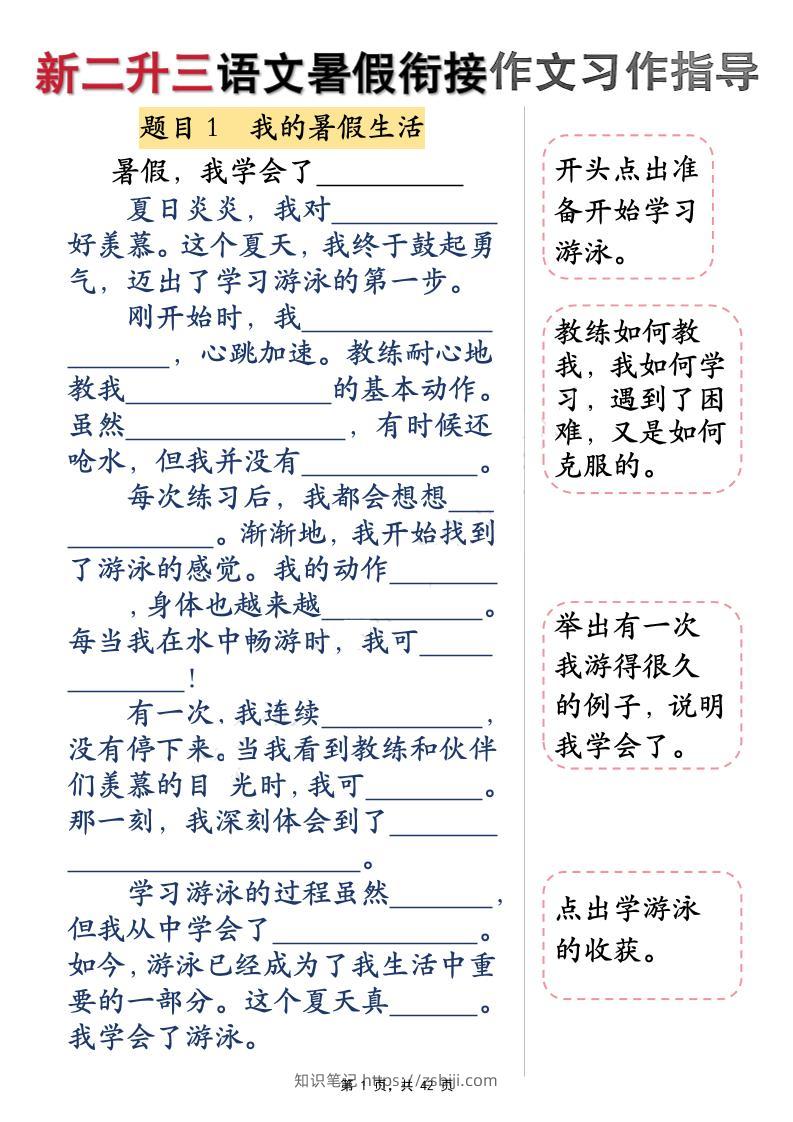 新二升三语文暑假衔接作文习作指导
题目1 我的暑假生活
暑假，我学会了__________
夏日炎炎，我对___________
好羡慕。这个夏天，我终于鼓起勇
气，迈出了学习游泳的第一步。
刚开始时，我_____________
_______，心跳加速。教练耐心地
教我______________的基本动作。
虽然_______________，有时候还
呛水，但我并没有____________。
每次练习后，我都会想想___
__________。渐渐地，我开始找到
了游泳的感觉。我的动作_______
，身体也越来越___________。
每当我在水中畅游时，我可_____
________！
有一次，我连续___________，
没有停下来。当我看到教练和伙伴
们羡慕的目 光时，我可________。
那一刻，我深刻体会到了_______
____________________。
学习游泳的过程虽然_______，
但我从中学会了______________。
如今，游泳已经成为了我生活中重
要的一部分。这个夏天真______。
我学会了游泳。
开头点出准
备开始学习
游泳。
教练如何教
我，我如何学
习，遇到了困
难，又是如何
克服的。
举出有一次
我游得很久
的例子，说明
我学会了。
点出学游泳
的收获。
知识笔记 https://zsbiji.com
第 1 页，共 42 页